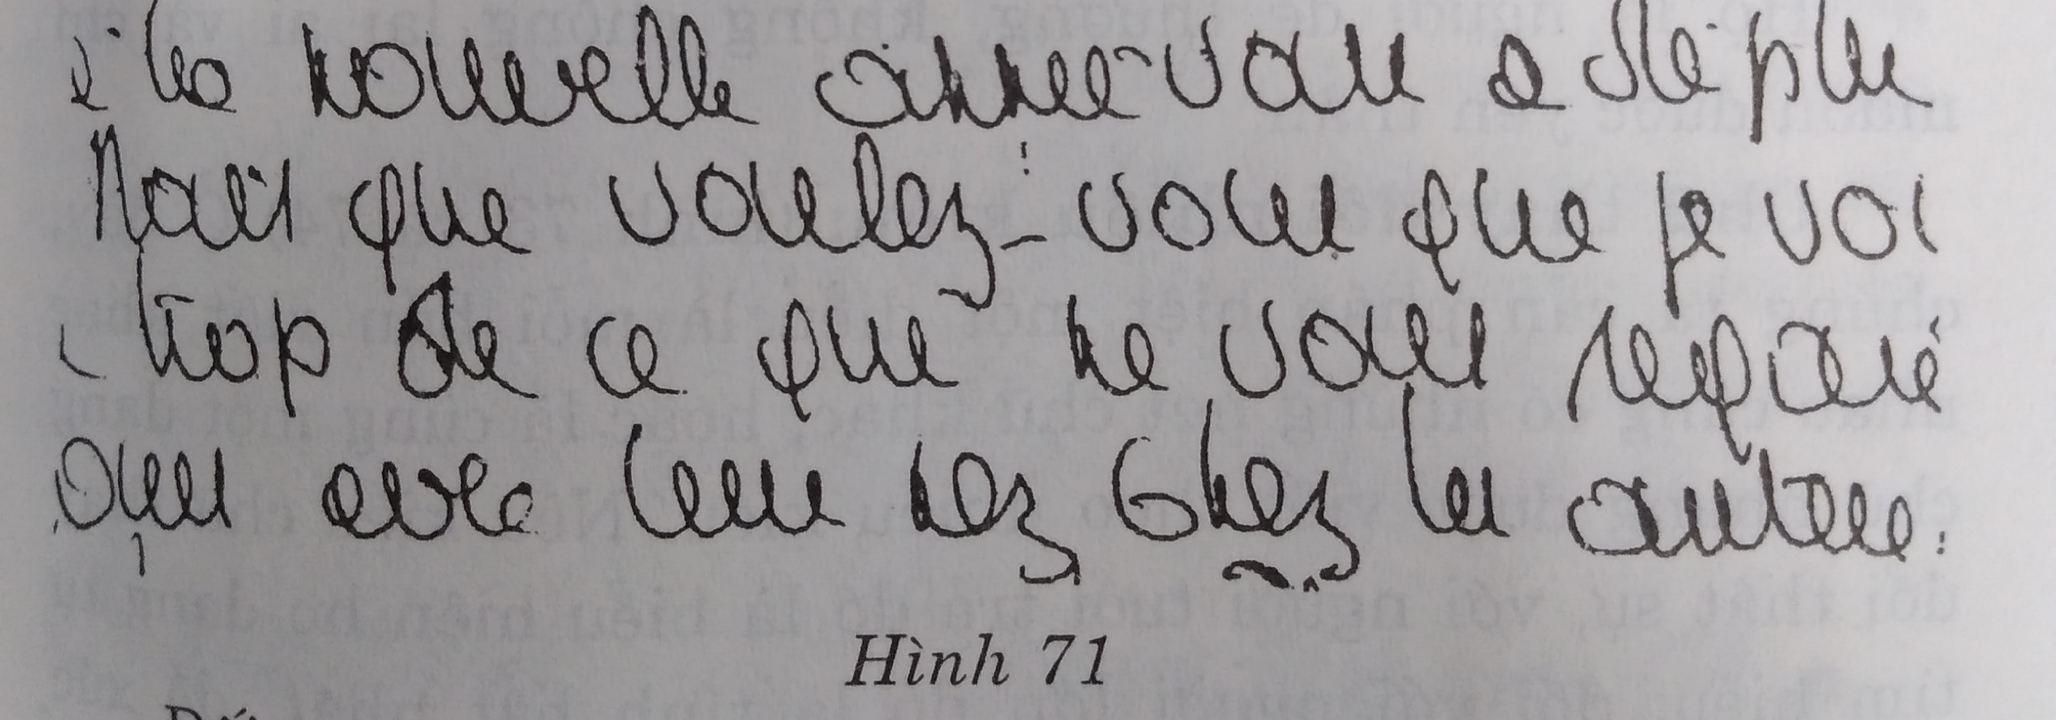 la nouvelle année vous a déplu
Mais que voulez-vous que je voi
trop de ce que ne vous regarde
avec leur nez chez les autres.
Hình 71